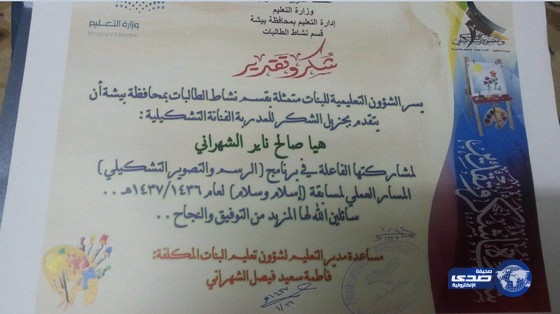 وزارة التعليم
إدارة التعليم بمحافظة بيشة
قسم نشاط الطالبات
وزارة التعليم
Ministry of Education
شكر وتقدير
يسر الشؤون التعليمية للبنات متمثلة بقسم نشاط الطالبات بمحافظة بيشة أن
يتقدم بجزيل الشكر للمدربة الفنانة التشكيلية :
هيا صالح ناير الشهراني
لمشاركتها الفاعلة في برنامج (الرسم والتصوير التشكيلي)
المسار العملي لمسابقة (إسلام وسلام) لعام ١٤٣٧/١٤٣٦هـ . .
سائلين الله لها المزيد من التوفيق والنجاح . .
مساعدة مدير التعليم لشؤون تعليم البنات المكلفة:
فاطمة سعيد فيصل الشهراني
صحيفة
صدى
الإلكترونية